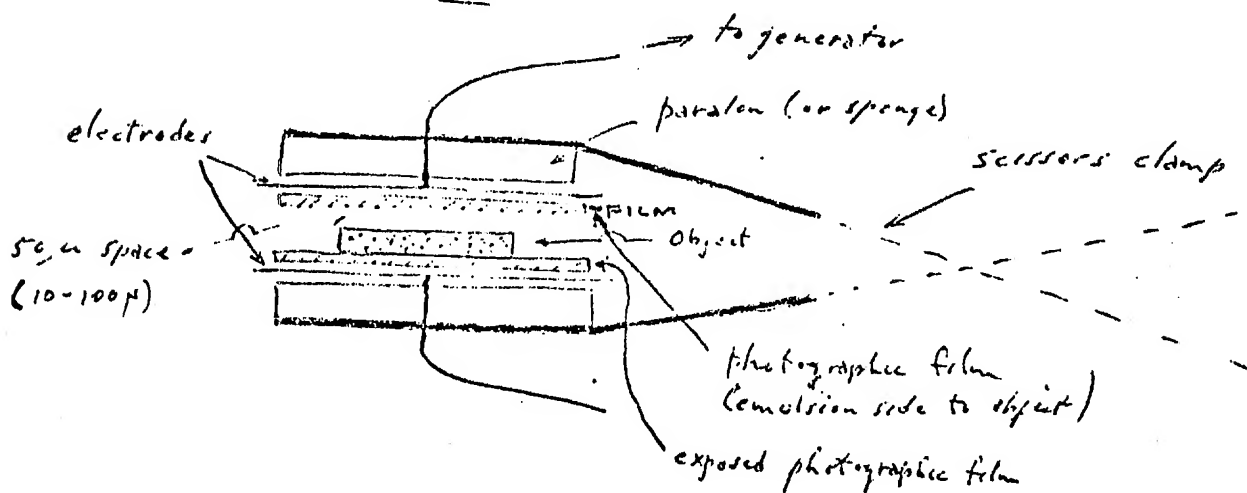 to generator
paralon (or sponge)
electrodes
scissors clamp
FILM
Object
50 μ space
(10-100μ)
photographic film
(emulsion side to object)
exposed photographic film